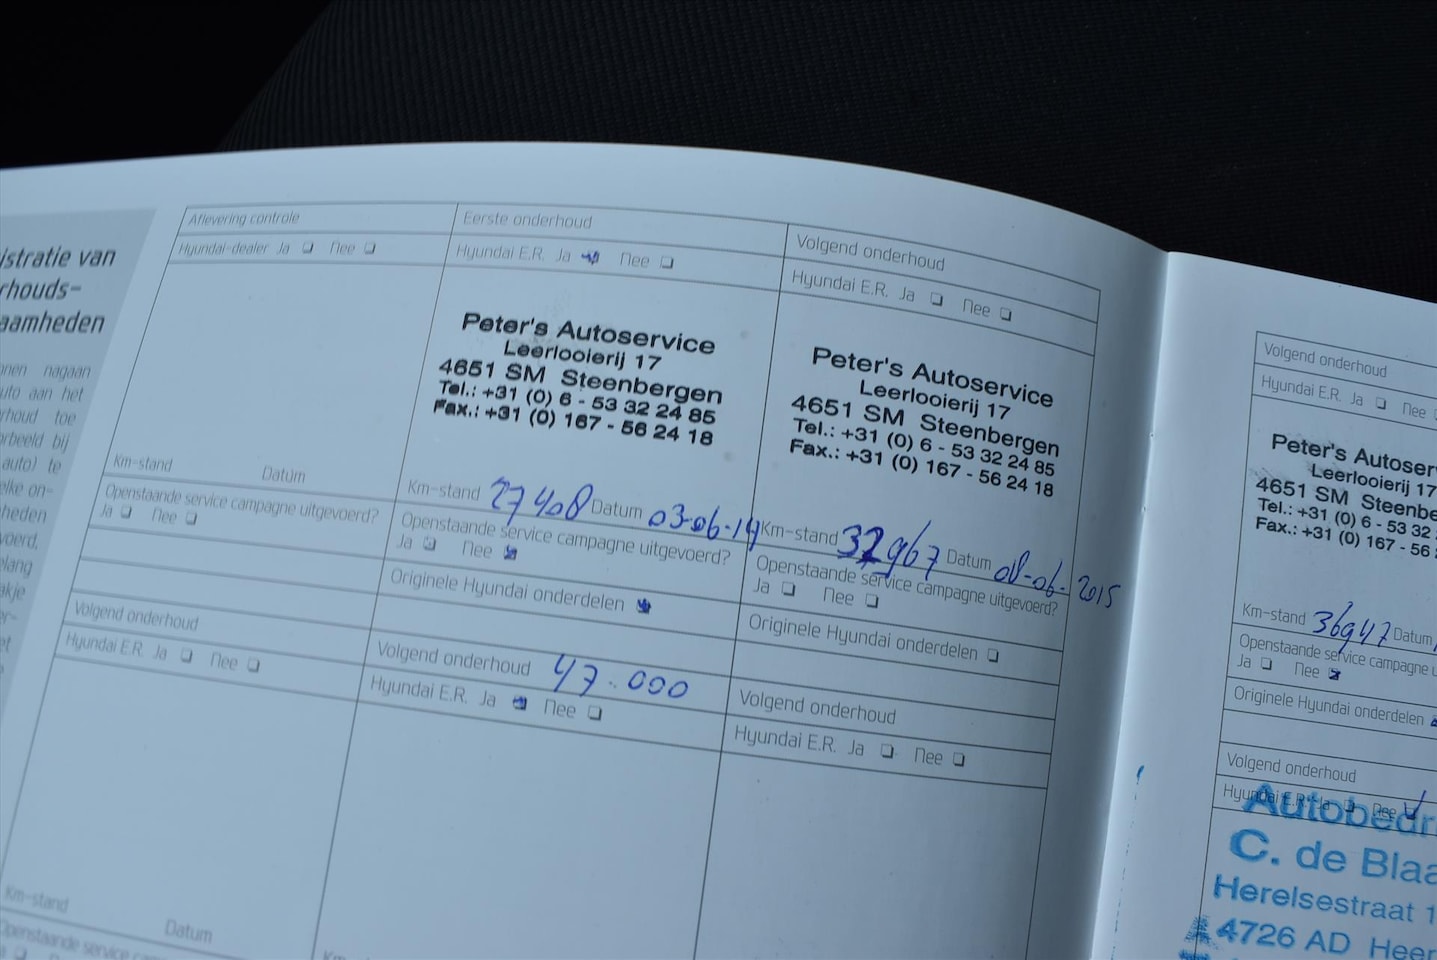 istratie van
rhouds-
aamheden
nnen nagaan
uto aan het
rhoud toe
orbeeld bij
auto) te
elke on-
heden
voerd,
elang
akje
er-
et
Aflevering controle
Hyundai-dealer Ja Nee
Km-stand Datum
Openstaande service campagne uitgevoerd?
Ja Nee
Volgend onderhoud
Hyundai E.R. Ja Nee
Km-stand Datum
Openstaande service cam
Eerste onderhoud
Hyundai E.R. Ja Nee
Peter's Autoservice
Leerlooierij 17
4651 SM Steenbergen
Tel.: +31 (0) 6 - 53 32 24 85
Fax.: +31 (0) 167 - 56 24 18
Km-stand 27408 Datum 03-06-14
Openstaande service campagne uitgevoerd?
Ja Nee
Originele Hyundai onderdelen
Volgend onderhoud 47.000
Hyundai E.R. Ja Nee
Km-st
Volgend onderhoud
Hyundai E.R. Ja Nee
Peter's Autoservice
Leerlooierij 17
4651 SM Steenbergen
Tel.: +31 (0) 6 - 53 32 24 85
Fax.: +31 (0) 167 - 56 24 18
Km-stand 32967 Datum 08-06-2015
Openstaande service campagne uitgevoerd?
Ja Nee
Originele Hyundai onderdelen
Volgend onderhoud
Hyundai E.R. Ja Nee
Volgend onderhoud
Hyundai E.R. Ja Nee
Peter's Autoser
Leerlooierij 17
4651 SM Steenbe
Tel.: +31 (0) 6 - 53 32
Fax.: +31 (0) 167 - 56
Km-stand 36947 Datum
Openstaande service campagne u
Ja Nee
Originele Hyundai onderdelen
Volgend onderhoud
Hyundai E.R. Ja Nee
Autobedr
C. de Blaa
Herelsestraat 1
4726 AD Heer